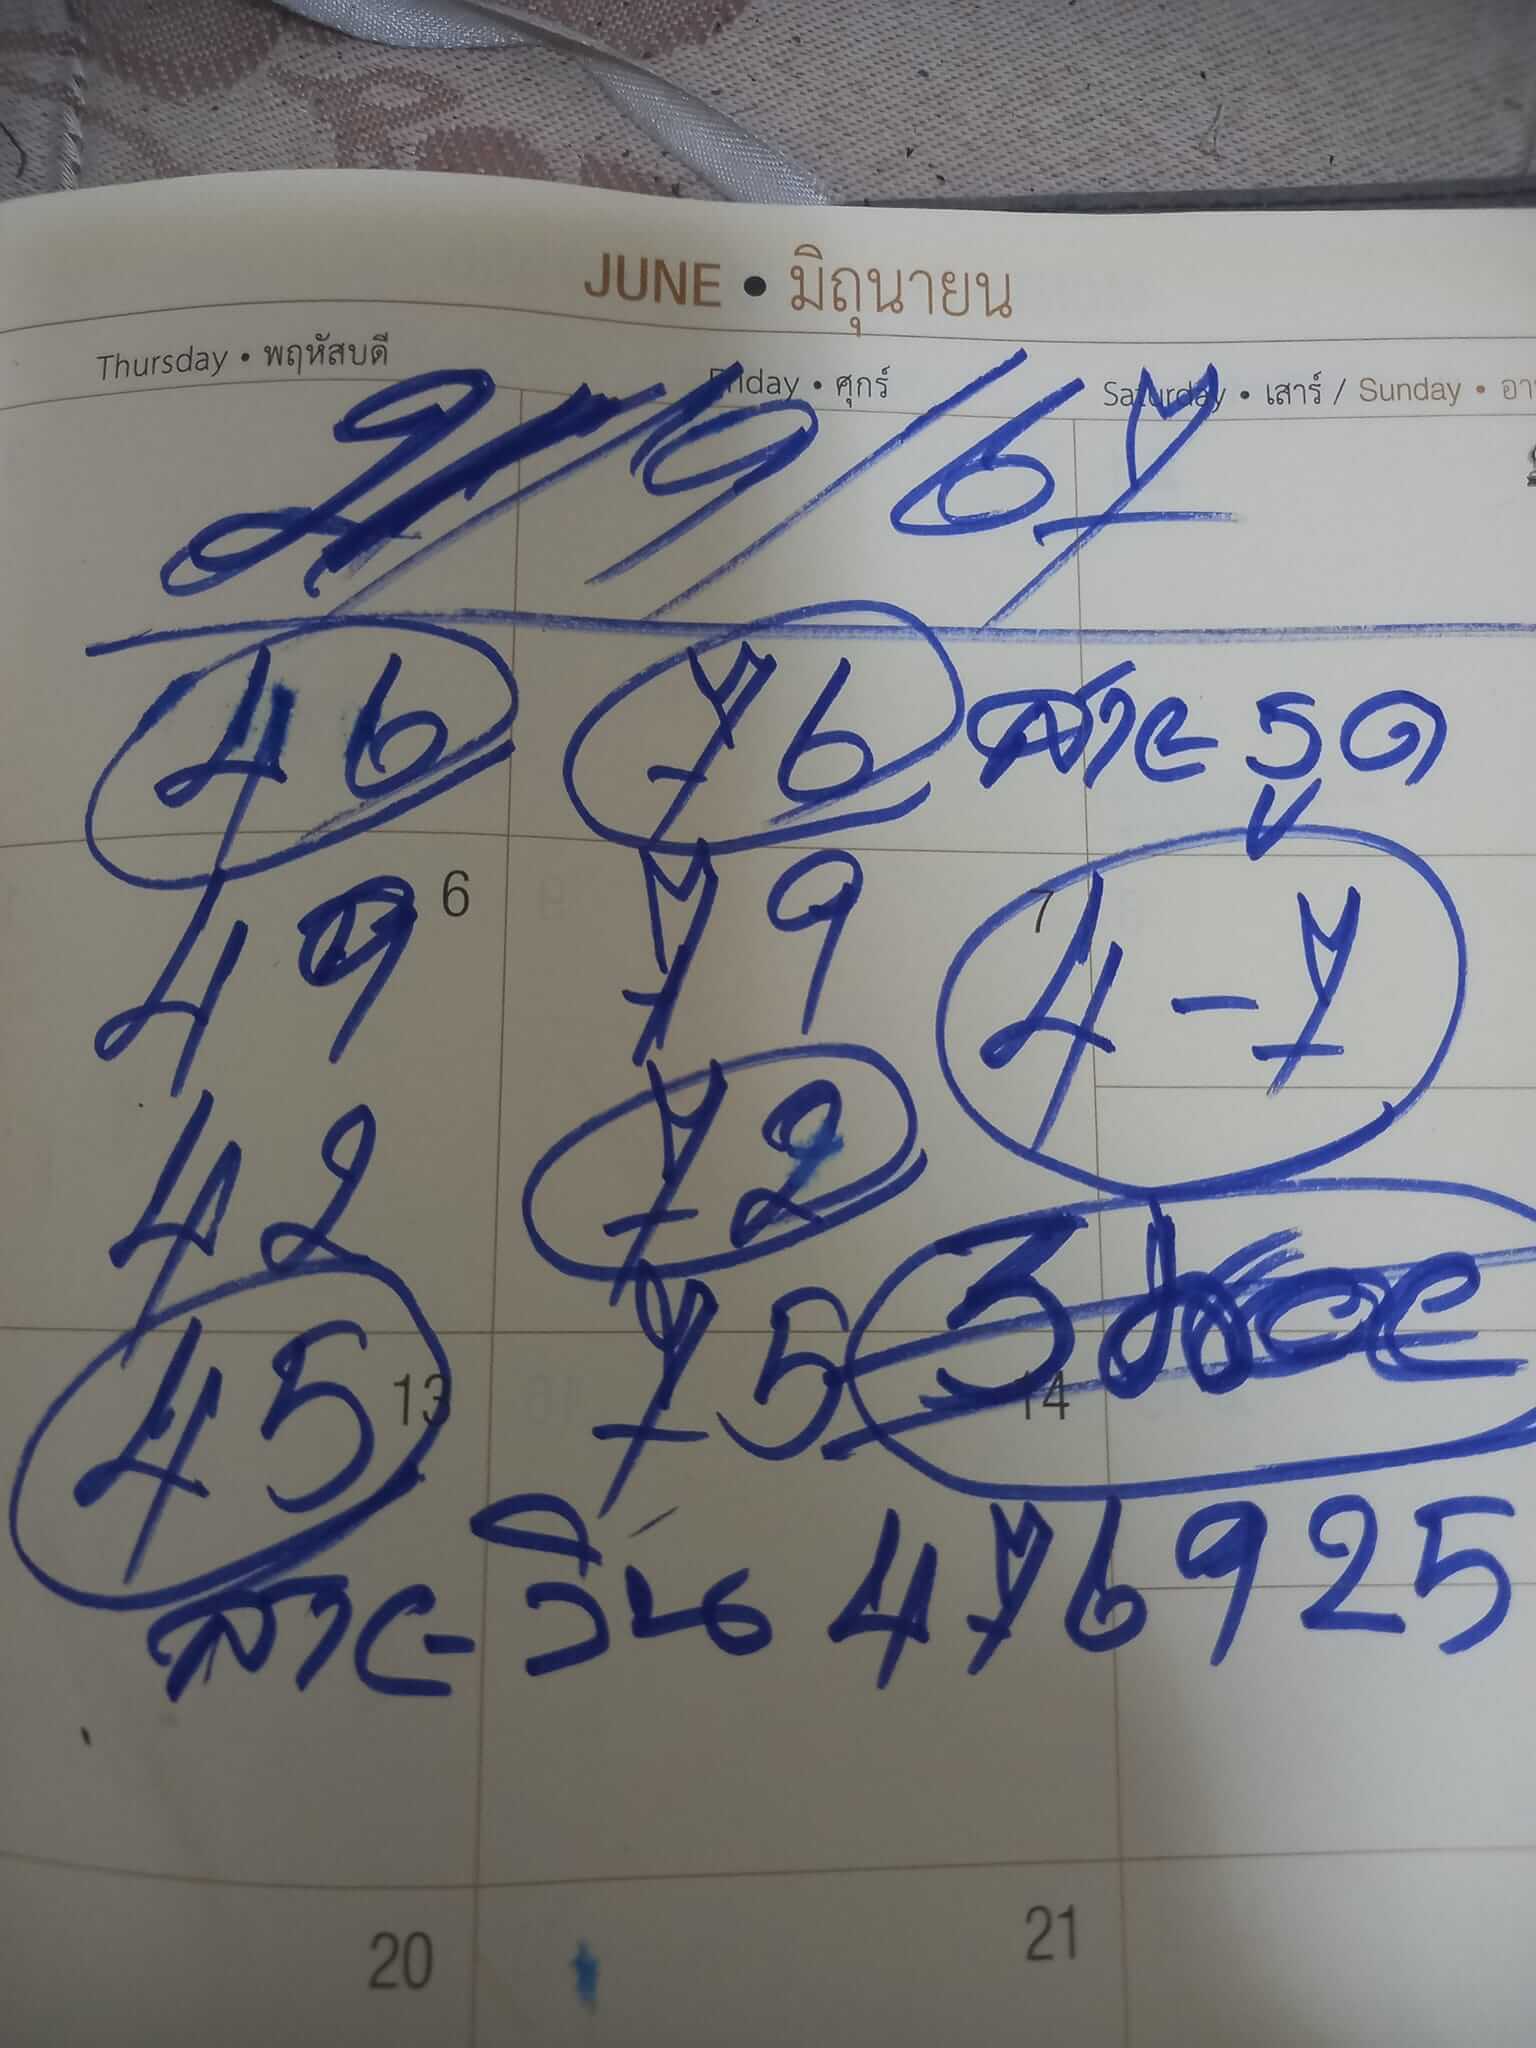 JUNE • มิถุนายน
Thursday • พฤหัสบดี Friday • ศุกร์ Saturday • เสาร์ / Sunday •
2/9/67
46 76 สาะรูด
6 7
49 79 4-7
42 72
13 14
45 75 3
สาะ วิ่น 476925
20 21